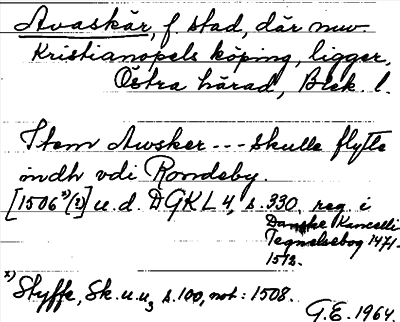 Avaskär, f stad, där nuv.
Kristianopels köping, ligger,
Östra härad, Blek. l.
Item Awsker --- skulle flytte
indh vdi Romdeby.
[1506 x)/(2)] u. d. DGKL 4, s. 330, reg i
Danske Kancelli
Tegnelsebog 1471-
1513.
x) Styffe, Sk. u. u, s. 100, not: 1508.
G.E. 1964.